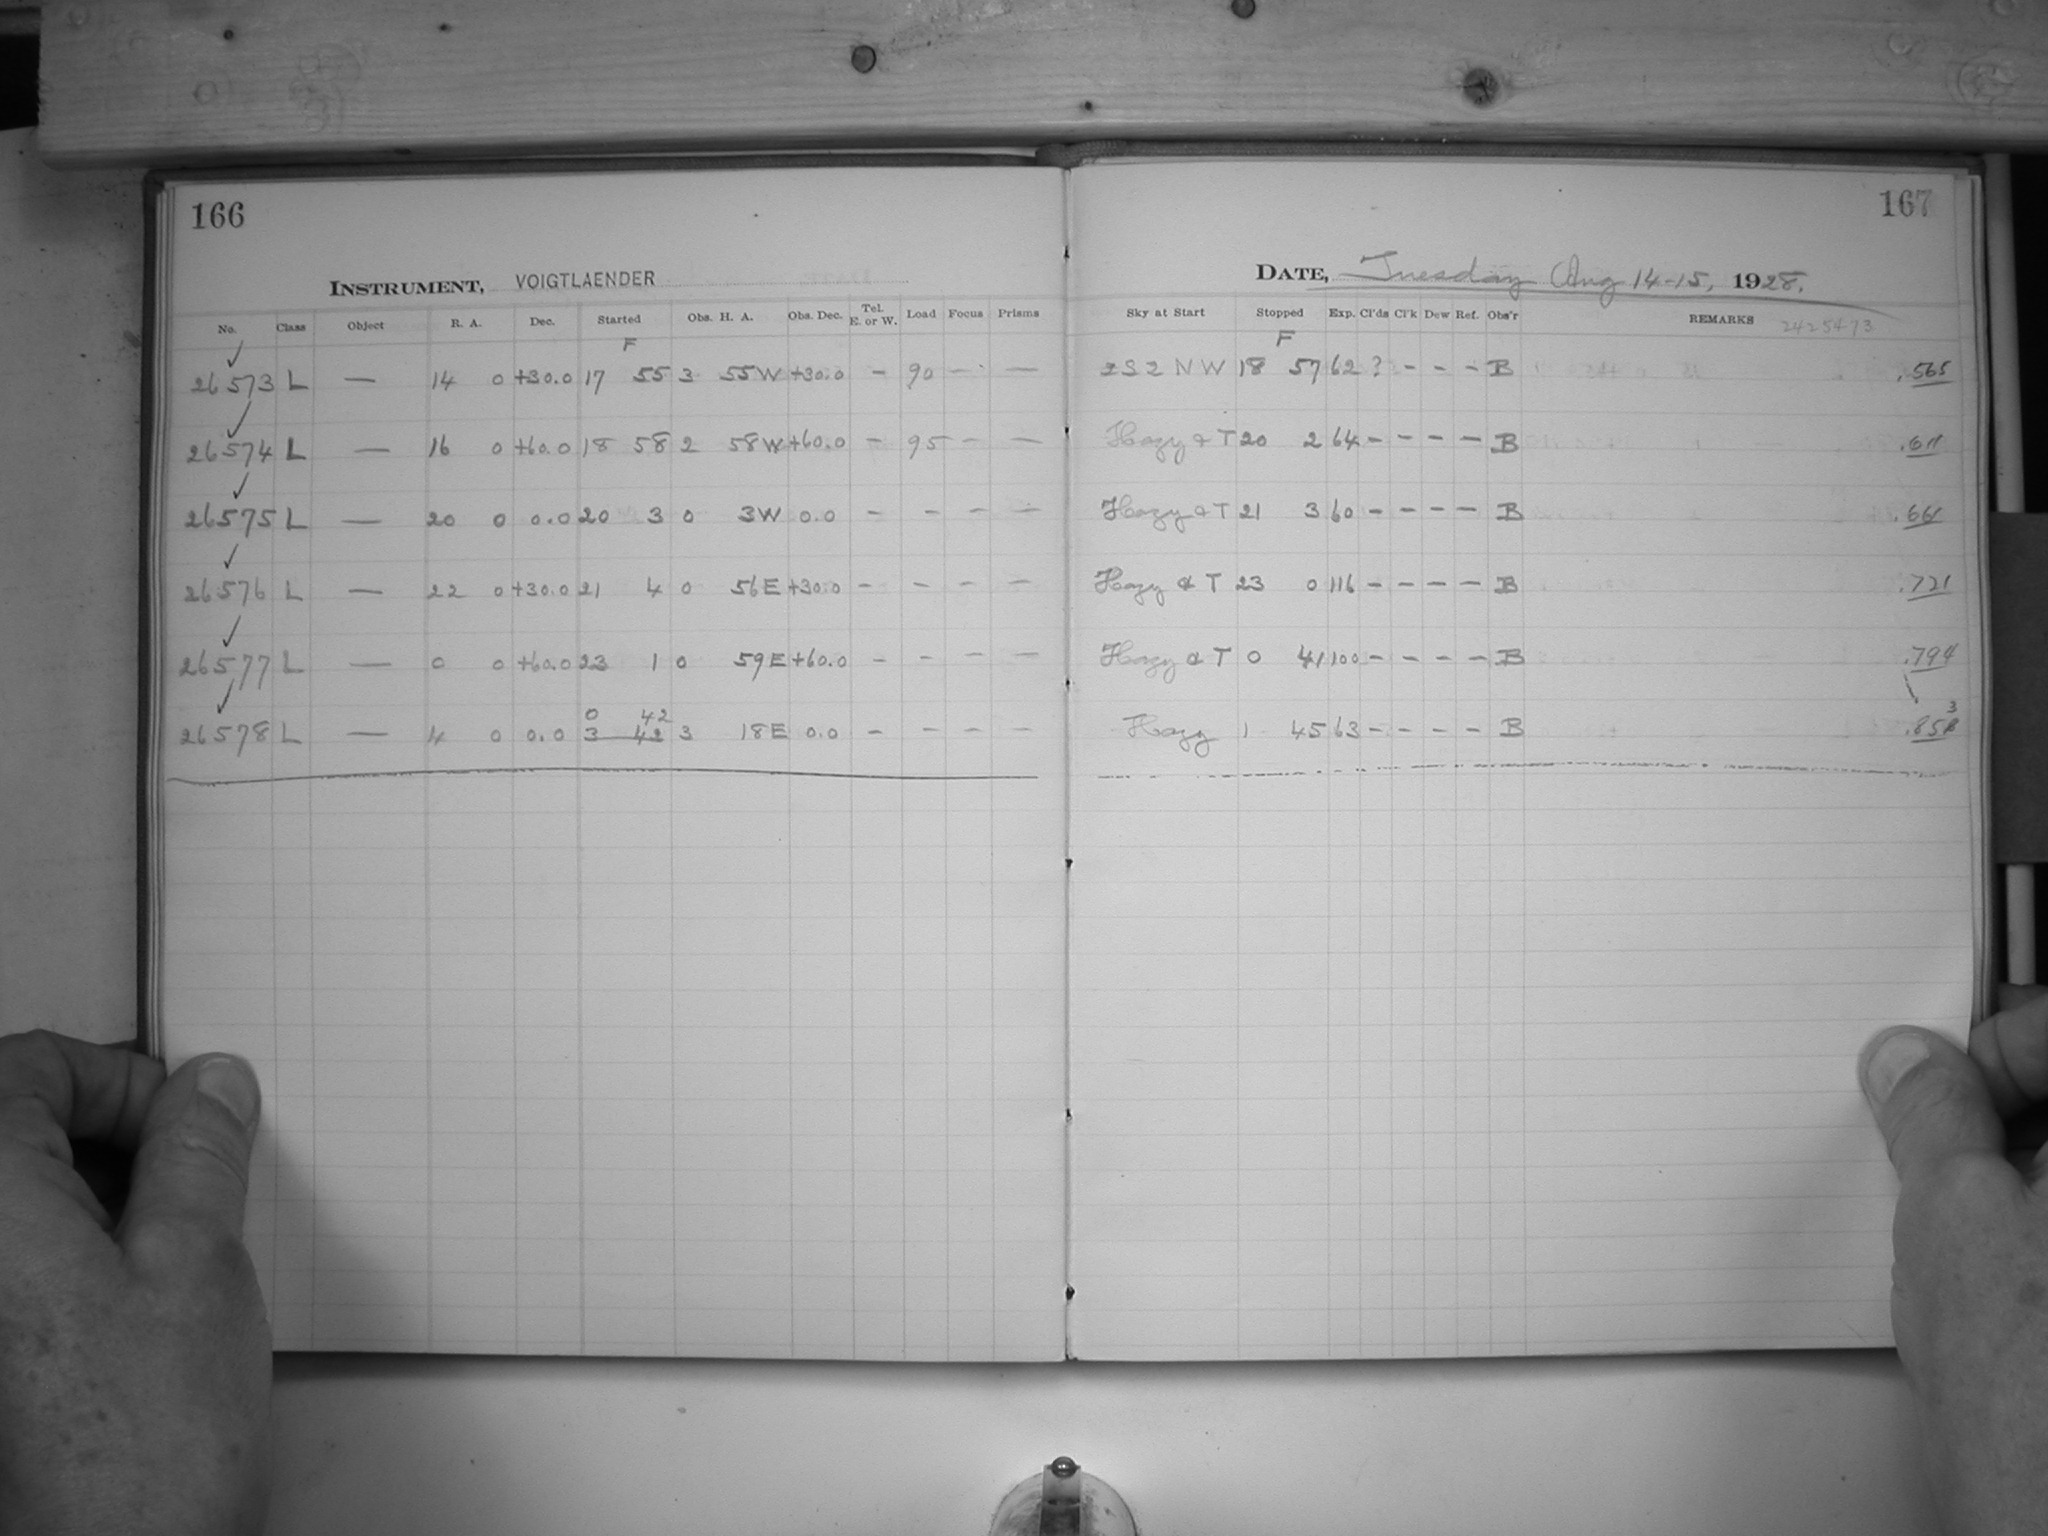 166
INSTRUMENT, VOIGTLAENDER
No. Class Object R. A. Dec. Started Obs. H. A. Obs. Dec. Tel. E. or W. Load Focus Prisms
F
26573 L — 14 0 +30.0 17 55 3 55W +30.0 - 90 - —
26574 L — 16 0 +60.0 18 58 2 58W +60.0 - 95 - —
26575 L — 20 0 0.0 20 3 0 3W 0.0 - - - —
26576 L — 22 0 +30.0 21 4 0 56E +30.0 - - - —
26577 L — 0 0 +60.0 23 1 0 59E +60.0 - - - —
0 42
26578 L — 4 0 0.0 3 42 3 18E 0.0 - - - —
167
DATE, Tuesday Aug 14-15, 1928.
Sky at Start Stopped Exp. Cl'ds Cl'k Dew Ref. Obs'r REMARKS 2425473
F
2S2 NW 18 57 62 ? - - - B .565
Hazy & T 20 2 64 - - - - B .611
Hazy & T 21 3 60 - - - - B .661
Hazy & T 23 0 116 - - - - B .721
Hazy & T 0 41 100 - - - - B .794
3
Hazy 1 45 63 - - - - B .858